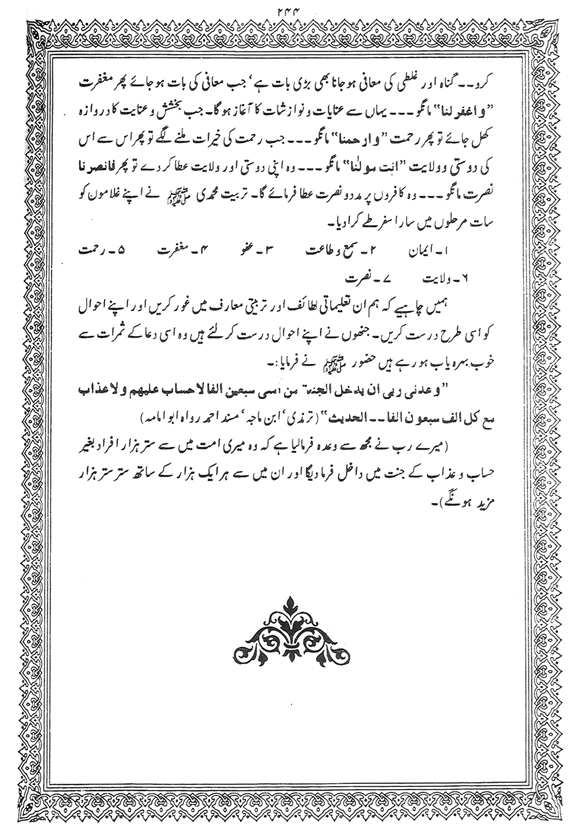 ۲۴۴
کرو۔۔ گناہ اور غلطی کی معافی ہو جانا بھی بڑی بات ہے‘ جب معافی کی بات ہو جائے پھر مغفرت
”واغفرلنا“ مانگو ۔۔۔ یہاں سے عنایات و نوازشات کا آغاز ہو گا۔ جب بخشش و عنایت کا دروازہ
کھل جائے تو پھر رحمت ”وارحمنا“ مانگو ۔۔۔ جب رحمت کی خیرات ملنے لگے تو پھر اس سے اس
کی دوستی و ولایت ”انت مولٰنا“ مانگو ۔۔۔ وہ اپنی دوستی اور ولایت عطا کر دے تو پھر فانصرنا
نصرت مانگو ۔۔۔ وہ کافروں پر مدد و نصرت عطا فرمائے گا۔ تربیت محمدی ﷺ نے اپنے غلاموں کو
سات مرحلوں میں سارا سفر طے کرا دیا۔
۱۔ ایمان ۲۔ سمع و طاعت ۳۔ عفو ۴۔ مغفرت ۵۔ رحمت
۶۔ ولایت ۷۔ نصرت
ہمیں چاہیے کہ ہم ان تعلیماتی لطائف اور تربیتی معارف میں غور کریں اور اپنے احوال
کو اسی طرح درست کریں۔ جنھوں نے اپنے احوال درست کر لئے ہیں وہ اسی دعا کے ثمرات سے
خوب بہرہ یاب ہو رہے ہیں حضور ﷺ نے فرمایا:۔
”وعدنی ربی ان یدخل الجنة من امتی سبعین الفا لا حساب علیهم ولا عذاب
مع کل الف سبعون الفا۔۔ الحدیث“ (ترمذی‘ ابن ماجہ‘ مسند احمد رواہ ابو امامہ)
(میرے رب نے مجھ سے وعدہ فرمالیا ہے کہ وہ میری امت میں سے ستر ہزار افراد بغیر
حساب و عذاب کے جنت میں داخل فرما دیگا اور ان میں سے ہر ایک ہزار کے ساتھ ستر ستر ہزار
مزید ہونگے)۔